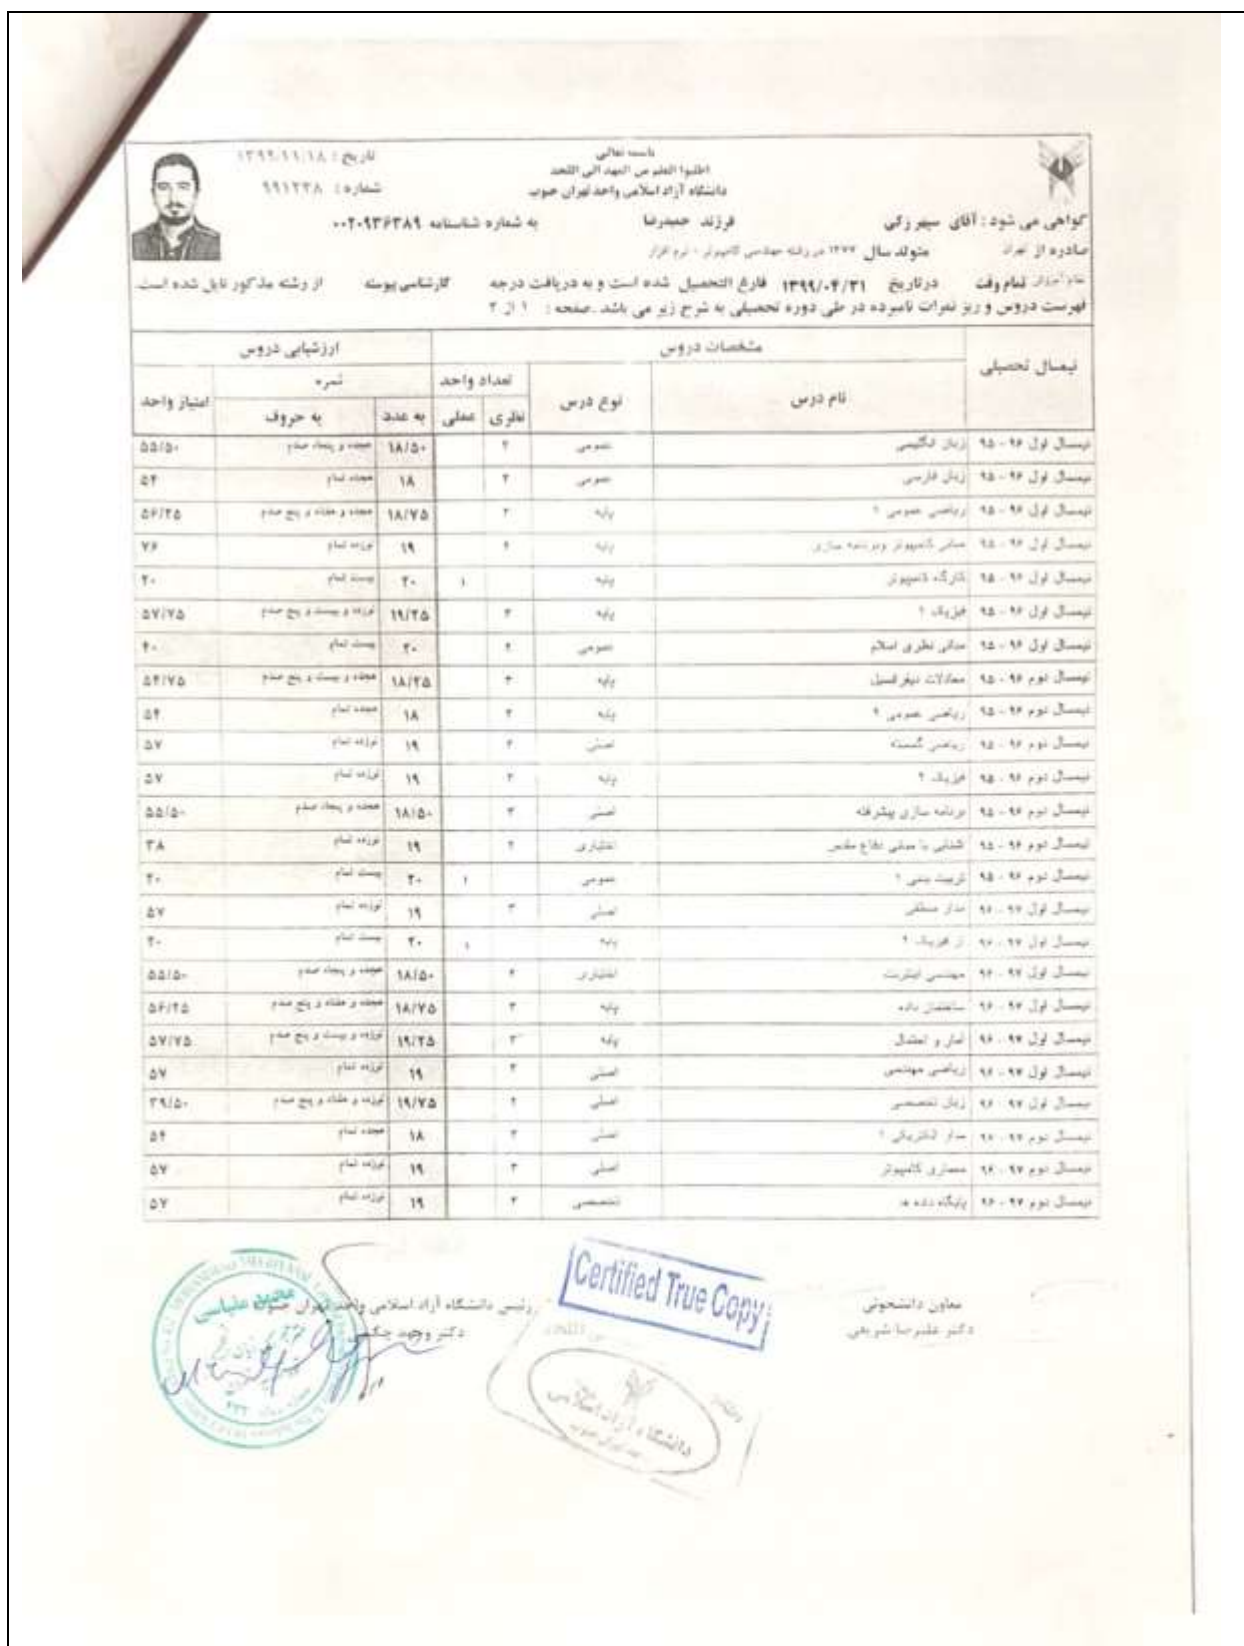 باسمه تعالی
اطلبوا العلم من المهد الی اللحد
دانشگاه آزاد اسلامی واحد تهران جنوب
تاریخ : ۱۳۹۹/۱۱/۱۸
شماره : ۹۹۱۲۳۸
گواهی می شود : آقای سپهر زکی فرزند حمیدرضا به شماره شناسنامه ۰۰۲۰۹۳۶۳۸۹
صادره از تهران متولد سال ۱۳۷۷ در رشته مهندسی کامپیوتر - نرم افزار
تمام وقت درتاریخ ۱۳۹۹/۰۴/۳۱ فارغ التحصیل شده است و به دریافت درجه کارشناسی پیوسته از رشته مذکور نایل شده است.
فهرست دروس و ریز نمرات نامبرده در طی دوره تحصیلی به شرح زیر می باشد .صفحه : ۱ از ۲
نیمسال تحصیلی مشخصات دروس ارزشیابی دروس
نام درس نوع درس تعداد واحد نمره امتیاز واحد
نظری عملی به عدد به حروف
نیمسال اول ۹۶ - ۹۵ زبان انگلیسی عمومی ۳ ۱۸/۵۰ هجده و پنجاه صدم ۵۵/۵۰
نیمسال اول ۹۶ - ۹۵ زبان فارسی عمومی ۳ ۱۸ هجده تمام ۵۴
نیمسال اول ۹۶ - ۹۵ ریاضی عمومی ۱ پایه ۳ ۱۸/۷۵ هجده و هفتاد و پنج صدم ۵۶/۲۵
نیمسال اول ۹۶ - ۹۵ مبانی کامپیوتر وبرنامه سازی پایه ۴ ۱۹ نوزده تمام ۷۶
نیمسال اول ۹۶ - ۹۵ کارگاه کامپیوتر پایه ۱ ۲۰ بیست تمام ۲۰
نیمسال اول ۹۶ - ۹۵ فیزیک ۱ پایه ۳ ۱۹/۲۵ نوزده و بیست و پنج صدم ۵۷/۷۵
نیمسال اول ۹۶ - ۹۵ مبانی نظری اسلام عمومی ۲ ۲۰ بیست تمام ۴۰
نیمسال دوم ۹۶ - ۹۵ معادلات دیفرانسیل پایه ۳ ۱۸/۲۵ هجده و بیست و پنج صدم ۵۴/۷۵
نیمسال دوم ۹۶ - ۹۵ ریاضی عمومی ۲ پایه ۳ ۱۸ هجده تمام ۵۴
نیمسال دوم ۹۶ - ۹۵ ریاضی گسسته اصلی ۳ ۱۹ نوزده تمام ۵۷
نیمسال دوم ۹۶ - ۹۵ فیزیک ۲ پایه ۳ ۱۹ نوزده تمام ۵۷
نیمسال دوم ۹۶ - ۹۵ برنامه سازی پیشرفته اصلی ۳ ۱۸/۵۰ هجده و پنجاه صدم ۵۵/۵۰
نیمسال دوم ۹۶ - ۹۵ با مبانی دفاع مقدس اختیاری ۲ ۱۹ نوزده تمام ۳۸
نیمسال دوم ۹۶ - ۹۵ تربیت بدنی ۱ عمومی ۱ ۲۰ بیست تمام ۲۰
نیمسال اول ۹۷ - ۹۶ مدار منطقی اصلی ۳ ۱۹ نوزده تمام ۵۷
نیمسال اول ۹۷ - ۹۶ فیزیک ۲ پایه ۱ ۲۰ بیست تمام ۲۰
نیمسال اول ۹۷ - ۹۶ مهندسی اینترنت اختیاری ۳ ۱۸/۵۰ هجده و پنجاه صدم ۵۵/۵۰
نیمسال اول ۹۷ - ۹۶ ساختمان داده پایه ۳ ۱۸/۷۵ هجده و هفتاد و پنج صدم ۵۶/۲۵
نیمسال اول ۹۷ - ۹۶ آمار و احتمال پایه ۳ ۱۹/۲۵ نوزده و بیست و پنج صدم ۵۷/۷۵
نیمسال اول ۹۷ - ۹۶ ریاضی مهندسی اصلی ۳ ۱۹ نوزده تمام ۵۷
نیمسال اول ۹۷ - ۹۶ زبان تخصصی اصلی ۲ ۱۹/۷۵ نوزده و هفتاد و پنج صدم ۳۹/۵۰
نیمسال دوم ۹۷ - ۹۶ مدار الکتریکی ۱ اصلی ۳ ۱۸ هجده تمام ۵۴
نیمسال دوم ۹۷ - ۹۶ معماری کامپیوتر اصلی ۳ ۱۹ نوزده تمام ۵۷
نیمسال دوم ۹۷ - ۹۶ پایگاه داده ها تخصصی ۳ ۱۹ نوزده تمام ۵۷
معاون دانشجوئی
دکتر علیرضا شریفی
Certified True Copy
رئیس دانشگاه آزاد اسلامی واحد تهران جنوب
دکتر وحید
دانشگاه آزاد اسلامی